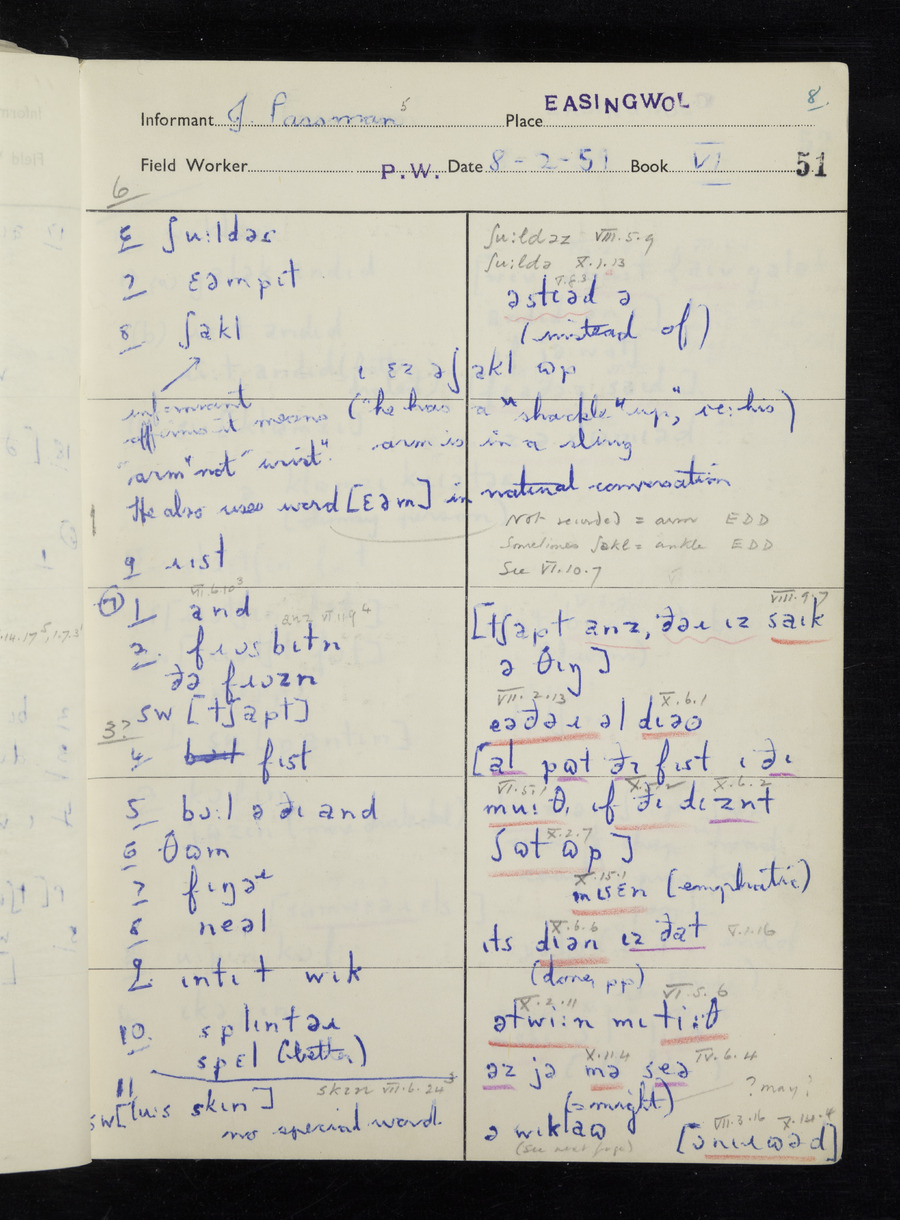 EASINGWOL 8.
Informant J Passman 5 Place
Field Worker P.W. Date 8-2-51 Book VI 51
6
6 ʃu:ldəz
7 ɛəmpɪt
8 ʃakl
informant
affirms it means
"arm" not "wrist".
He also uses word [ɛəm] in natural conversation
9 ɹɪst
ʃu:ldəz VIII.5.9
ʃu:ldə X.1.13
əstɪəd ə
(instead of)
ɪ ɛz ə ʃakl ɷp
("he has a "shackle" up", ie: his)
arm is in a sling
Not recorded = arm EDD
Sometimes ʃakl = ankle EDD
See VI.10.7
7 1 and
anz VII.1.9 4
2. fɹɔsbɪtn
ðə fɹɔzn
3? SW [tʃapt]
4 fɪst
5 bɔ:l ə ðɪ and
6 θɷm
7 fɪŋəɹ
8 neəl
9. ɪntɪt wɪk
10. splɪntəɹ
spɛl (better)
11 skɪn VII.6.24
SW [lu:s skɪn]
no special word.
VIII.9.7
[tʃapt anz, ðəɹ ɪz saɪk
ə θɪŋ]
VII.2.13 X.6.1
eəðəɹ əl dɪəo
[al pɷt ðɪ fɪst ɪ ðɪ
VI.5.1 X.6.2
mu: θ, ɪf ðɪ dɪznt
X.2.7
ʃɷt ɷp]
X.15.1
mɪsɛn (emphatic)
X.6.6
ɪts dɪən ɪz ðat V.1.16
(done, pp)
X.2.11 VI.5.6
ətwi:n mɪ ti:θ
X.11.4 IV.6.4
əz jə mə seə
(=might) ?may?
ə wɪklaɷ
(see next page)
VII.3.16 X.14.4
[ɔnɪɹɷəd]